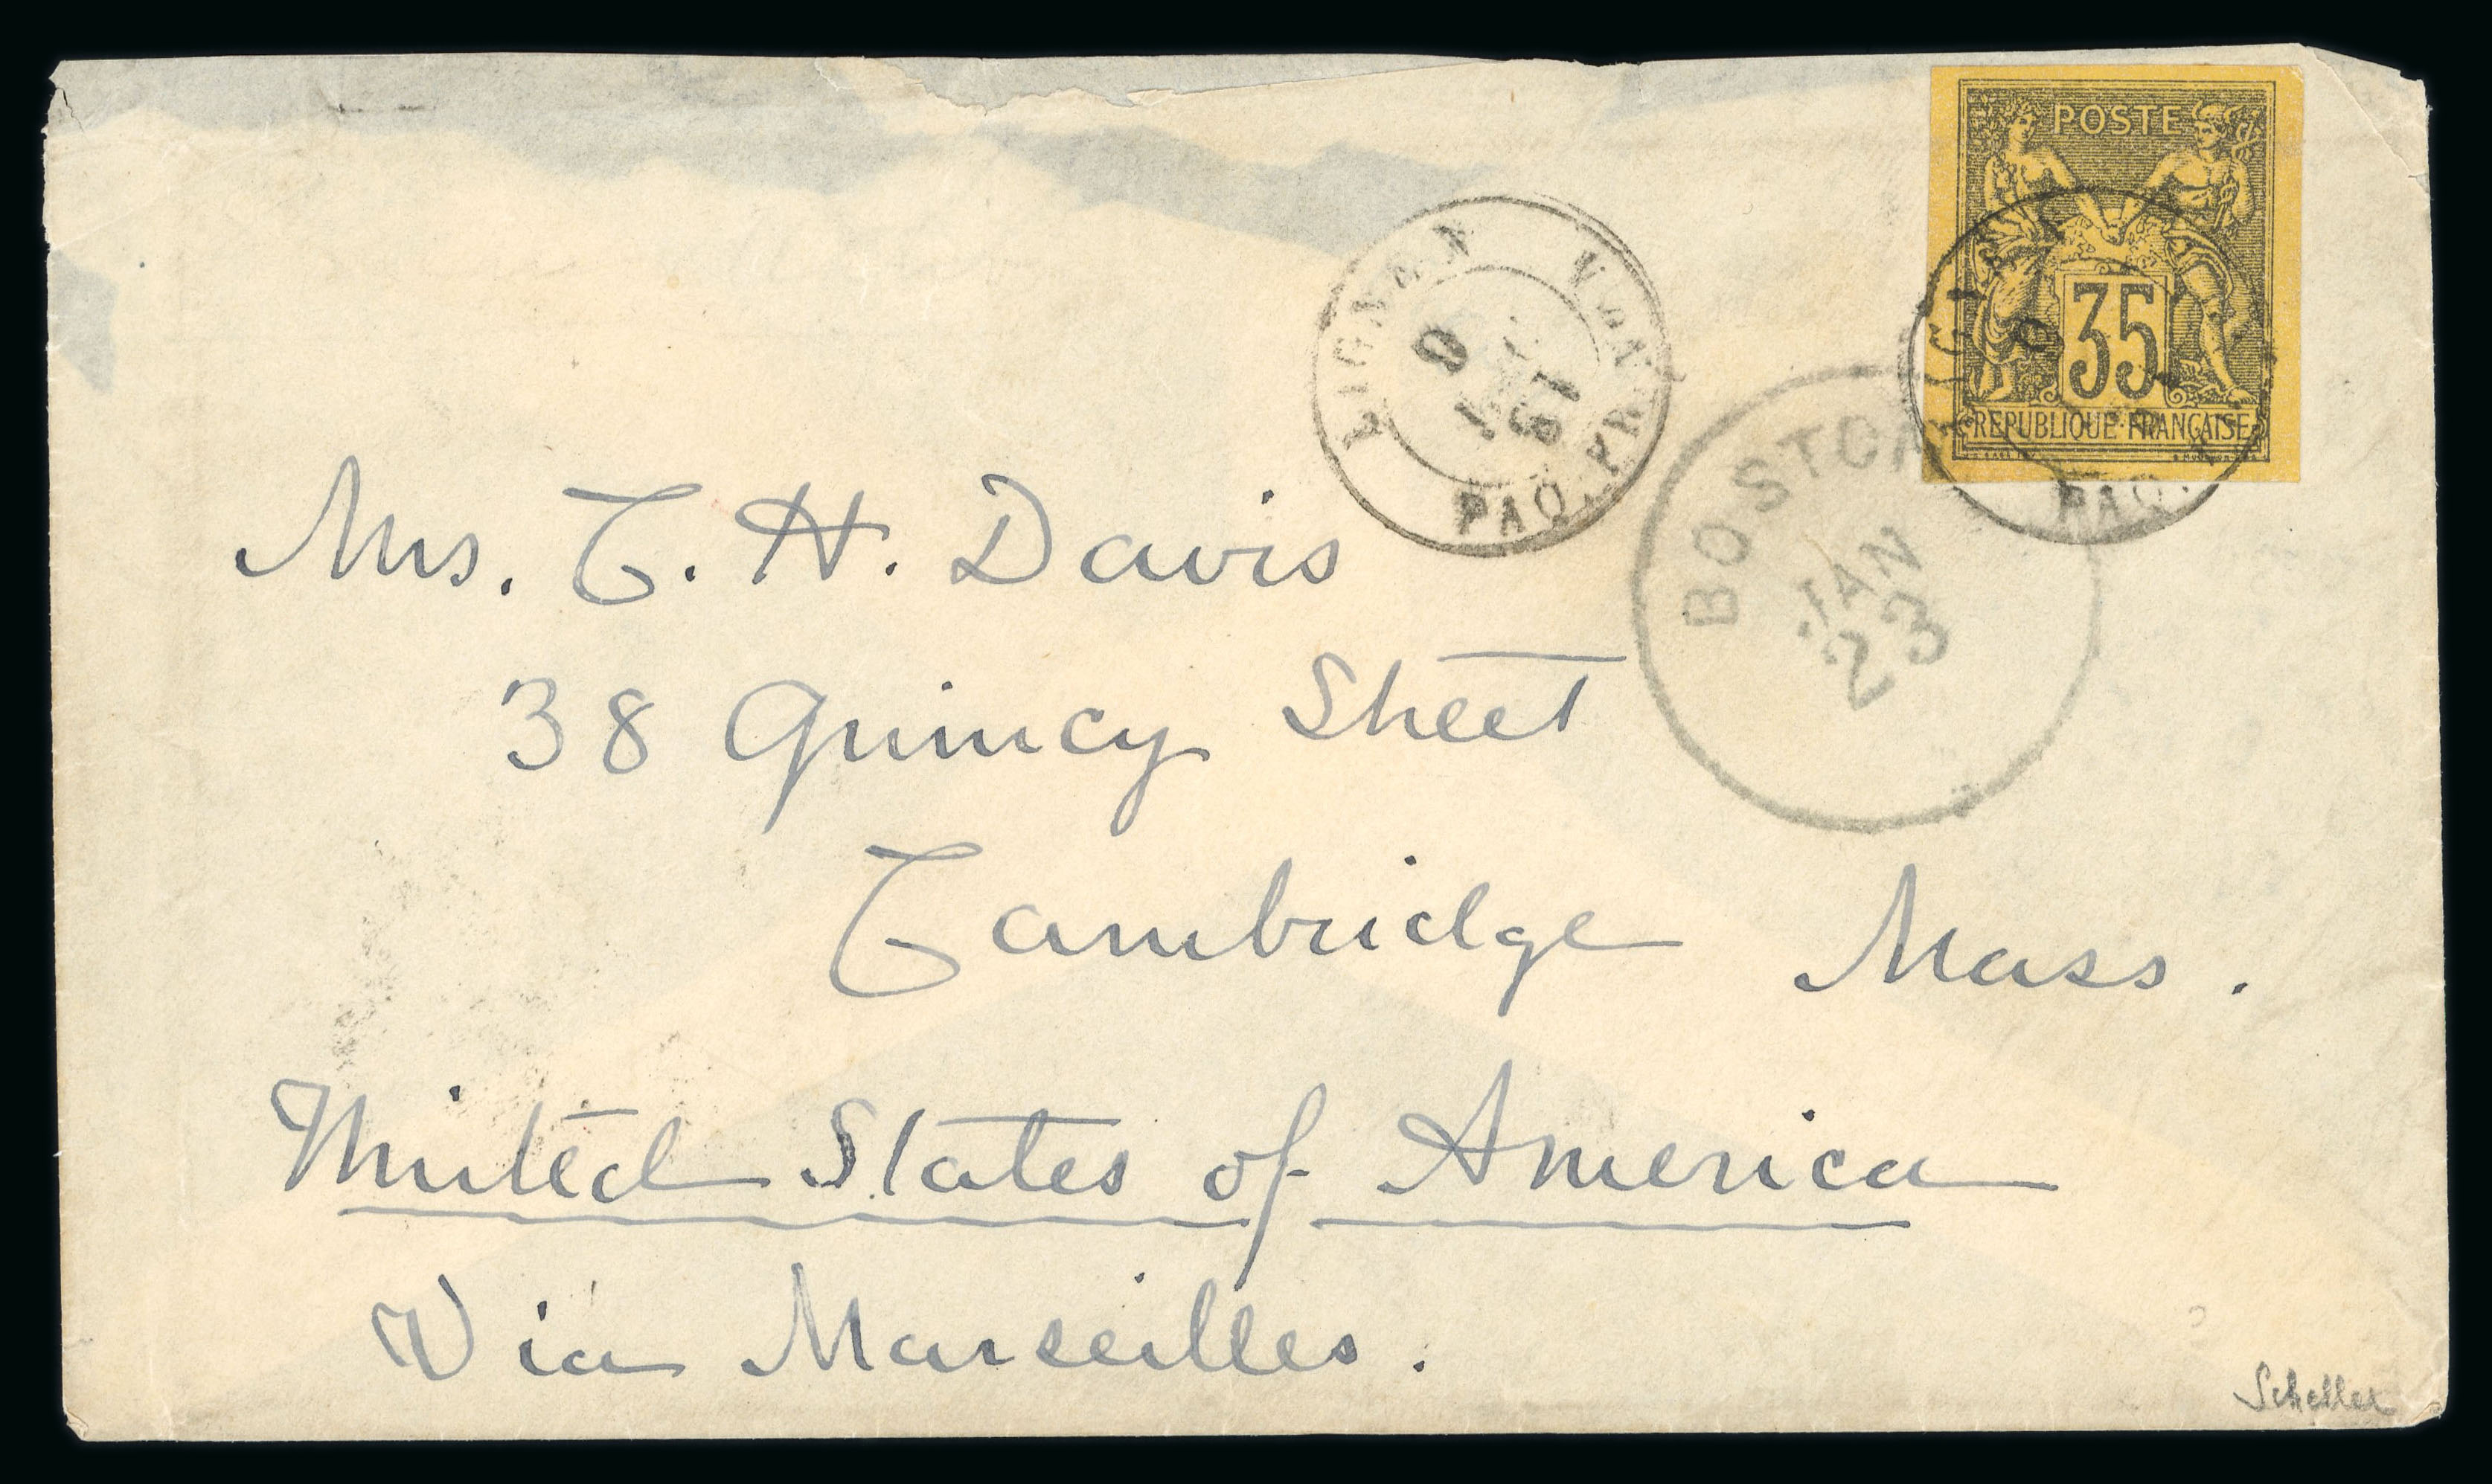 POSTE
35
REPUBLIQUE FRANÇAISE
LIGNE N
PAQ. FR.
PAQ.
BOSTON
JAN
23
Mrs. C. H. Davis
38 Quincy Street
Cambridge Mass.
United States of America
Via Marseilles.
Scheller